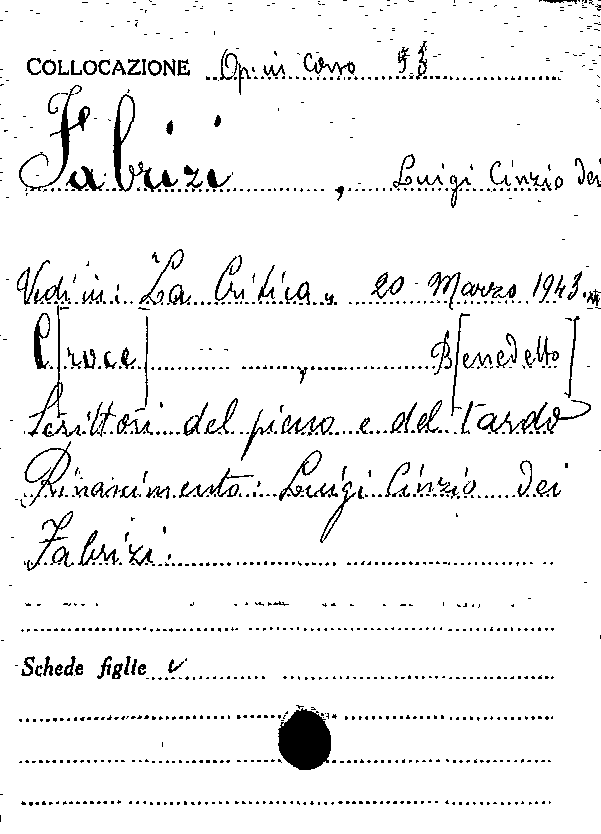 COLLOCAZIONE Op. in Corso
Fabrizi , Luigi Cinzio dei
Vedi in: "La Critica„ 20 Marzo 1943.
C[roce] , B[enedetto]
Scrittori del pieno e del tardo
Rinascimento: Luigi Cinzio dei
Fabrizi.
Schede figlie v